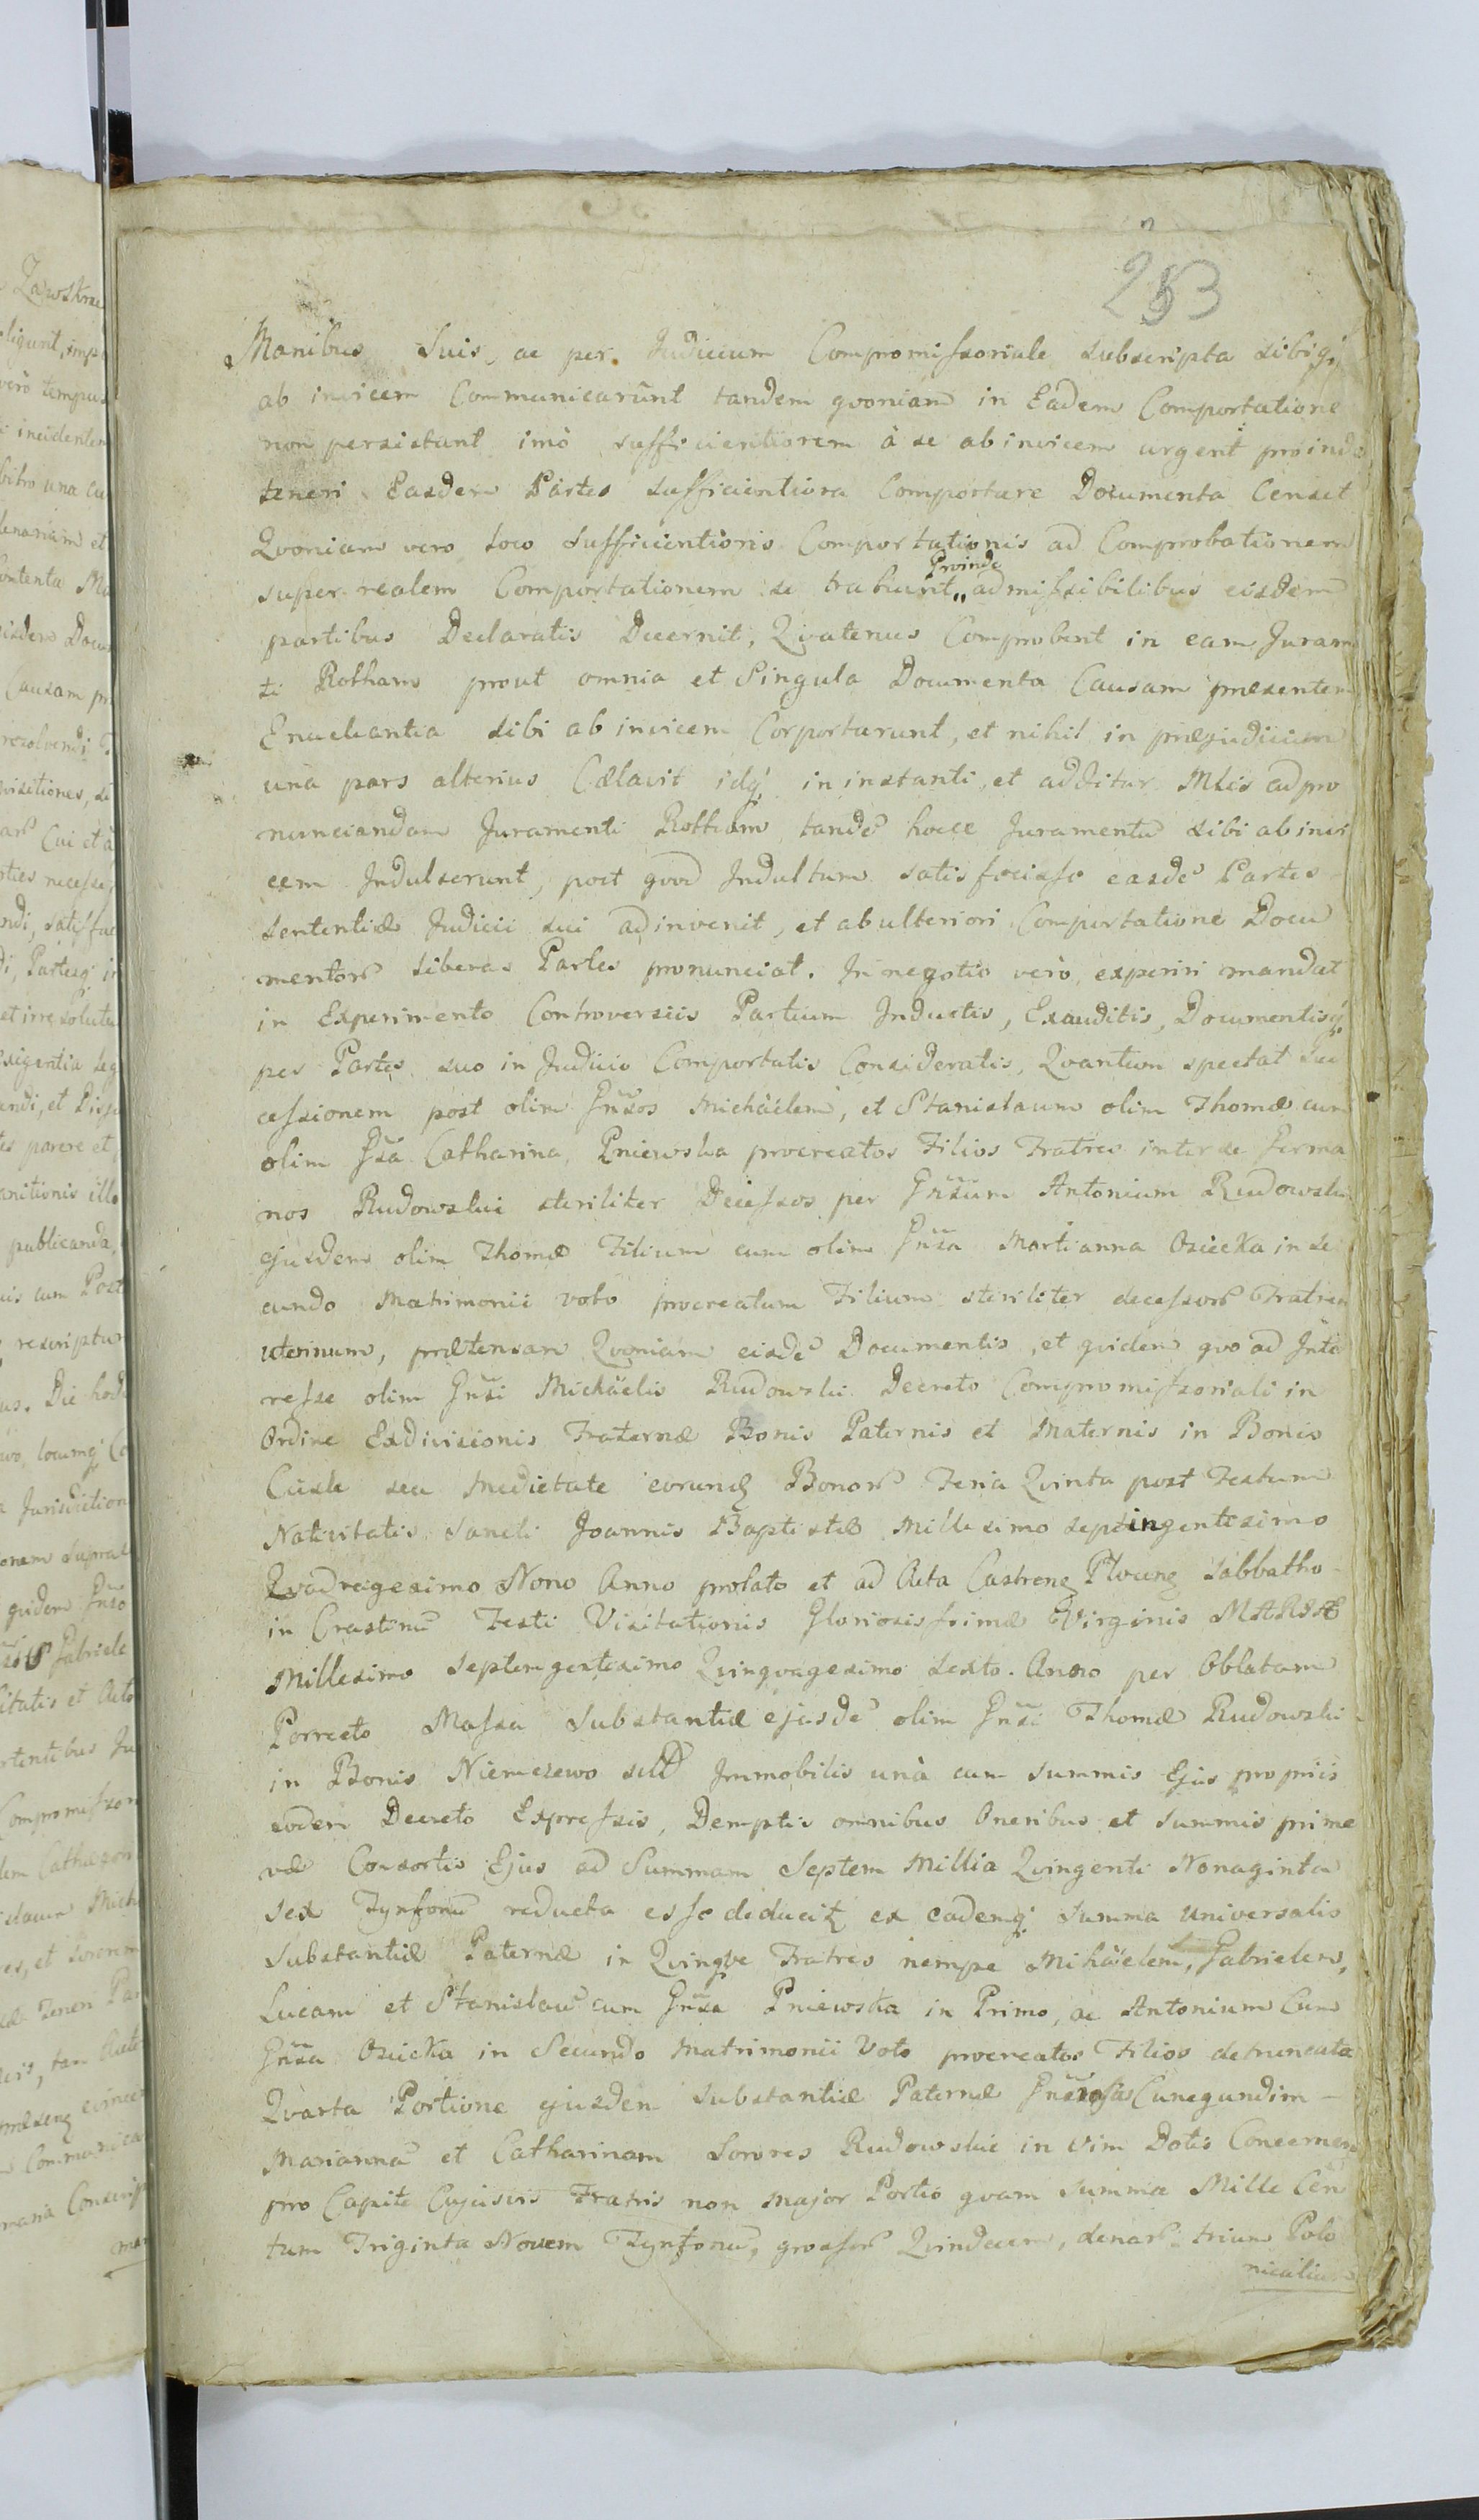 253
Manibus Suis, ac per Judicium Compromissoriale subscripta sibiq́;
ab invicem Communicarũnt tandem qvoniam in Eadem Comportatione
non persistunt imò sufficientiorem à se ab invicem urgent proinde
teneri Easdem Partes sufficientiora Comportare Documenta Censet
Qvoniam vero loco Sufficientioris Comportationis ad Comprobationem
Proinde
super realem Comportationem se trahunt,, admissibilibus eisdem
partibus Declaratis Decernit, Qvatenus Comprobent in eam Juram
ti Rotham prout omnia et Singula Documenta Causam præsentem
Enucleantia sibi ab invicem Corportarunt, et nihil in præjudicium
una pars alterius Cælavit idq́; in instanti, et additur Mlis ad pro
nunciandam Juramenti Rotham tandẽ hocce Juramentũ sibi ab invi
cem Indulserunt, post qvod Indultum satisfecisse easdẽ Partes
sententiæ Judicii sui adinvenit, et ab ulteriori Comportatione Docu
mentor̃ liberas Partes pronunciat. In negotio verò experiri mandat
in Experimento Controversiis Partium Inductis, Exauditis, Documentisq́;
per Partes suo in Judicio Comportatis Consideratis, Qvantum spectat Suc
cessionem post olim Gñsos Michäelem, et Stanislaum olim Thomæ cum
olim Gñsa Catharina Pniewska procreatos Filios Fratres inter se Germa
nos Rudowskie steriliter Decessos per Gñsum Antonium Rudowski
ejusdem olim Thomæ Filium cum olim Gñsa Martianna Osiecka in se
cundo Matrimonii voto procreatum Filium steriliter decessor̃ Fratrem
uterinum, prætensam Qvoniam eisdẽ Documentis, et qvidem qvo ad Inte
resse olim Gñsi Michäelis Rudowski Decreto Compromissoriali in
Ordine Exdivisionis Fraternæ Bonis Paternis et Maternis in Bonis
seu Medietate eorund Bonor̃ Feria Qvinta post Festum
Nativitatis Sancti Joannis Baptistæ Millesimo septingentesimo
Qvadragesimo Nono Anno prolato et ad Acta Castren Plocen Sabbatho
in Crastinũ Festi Visitationis Gloriosissimæ Virginis MARIÆ
Millesimo septemgentesimo Qvinqvagesimo sexto. Anno per Oblatam
Porrecto Massa Substantiæ ejusdẽ olim Gñsi Thomæ Rudowski
in Bonis Niemczewo Immobilis unà cum summis Ejus propriis
eodem Decreto Expressis, Demptis omnibus Oneribus et summis prime
væ Consortis Ejus ad Summam Septem Millia Qvingenti Nonaginta
sex Tynfonũ reducta esse deducit ex eademq́; summa universalis
Substantiæ Paternæ in Qvinqve Fratres nempe Mihäelem, Gabrielem,
Lucam et Stanislaũ cum Gñsa Pniewska in Primo, ac Antonium Cum
Gñsa Osiecka in Secundo Matrimonii Voto procreatos Filios detruncata
Qvarta Portione ejusdem substantiæ Paternæ Cunegundim
Mariannã et Catharinam Sorores Rudowskie in vim Dotis Concernen
pro Capite Cujusvis Fratris non major Portio qvam summa Mille Cen
tum Triginta Novem Tynfonũ, grossor̃ Qvindecem, denar̃ trium Polo
nicalium